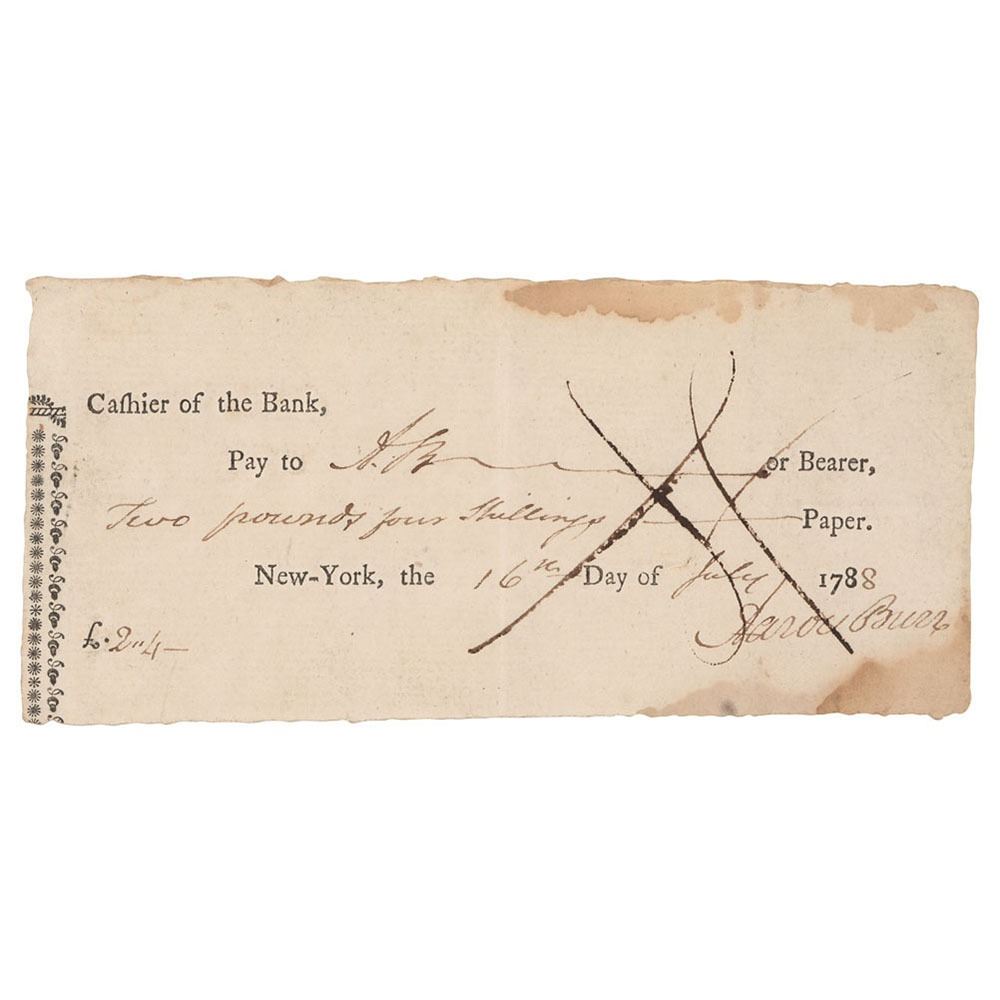 Caſhier of the Bank,
Pay to A. B or Bearer,
Two pounds four Shillings Paper.
New-York, the 16th Day of July 1788
£. 2"4—
Aaron Burr